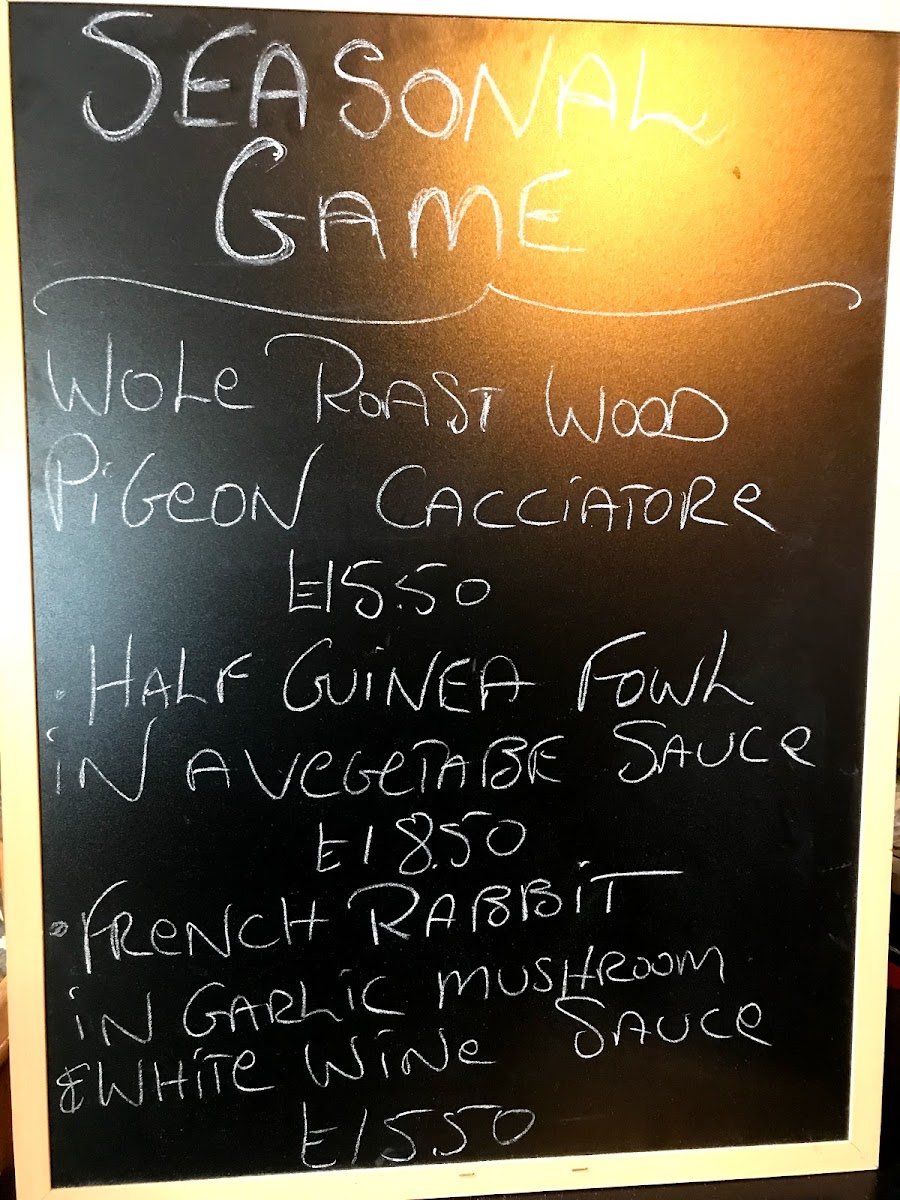 SEASONAL
GAME
WOLE ROAST WOOD
PIGEON CACCIATORE
£15.50
• HALF GUINEA FOWL
IN A VEGETABE SAUCE
£18.50
• FRENCH RABBIT
IN GARLIC MUSHROOM
& WHITE WINE SAUCE
£15.50